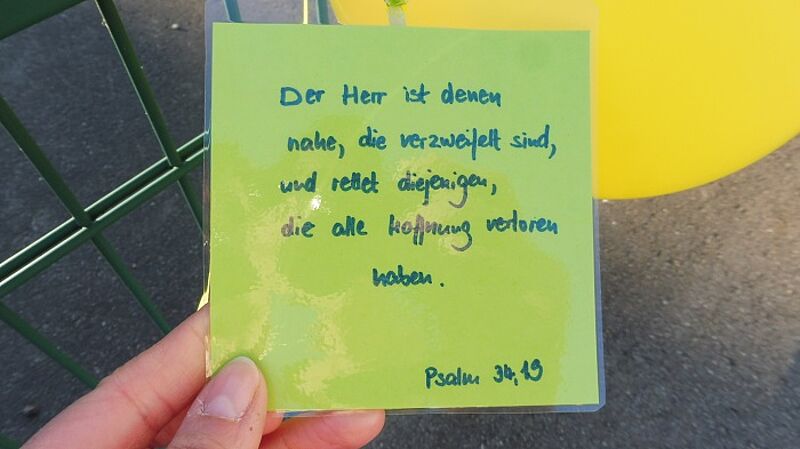 Der Herr ist denen
nahe, die verzweifelt sind,
und rettet diejenigen,
die alle Hoffnung verloren
haben.
Psalm 34,19